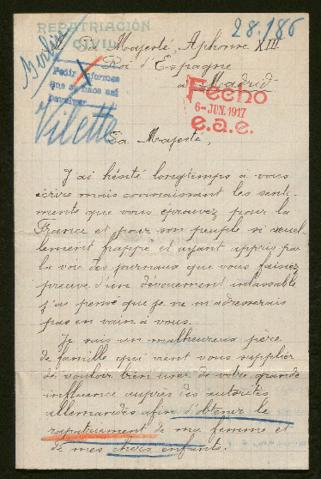 REPATRIACIÓN
CIVIL
28.186
Berlin
A Sa Majesté Alphonse XIII
Roi d'Espagne
a Madrid
Pedir informes
Vilette
Fecho
6-JUN. 1917
e.a.e.
Sa Majesté,
J'ai hésité longtemps à vous
écrire mais connaissant les senti-
ments que vous éprouvez pour la
France et pour son peuple si cruel-
lement frappé et ayant appris par
la voie des journaux que vous faisiez
preuve d'un dévouement inlassable
j'ai pensé que je ne m'adresserais
pas en vain à vous.
Je suis un malheureux père
de famille qui vient vous supplier
de vouloir bien user de votre grande
influence auprès des autorités
allemandes afin d'obtenir le
rapatriement de ma femme et
de mes chers enfants.